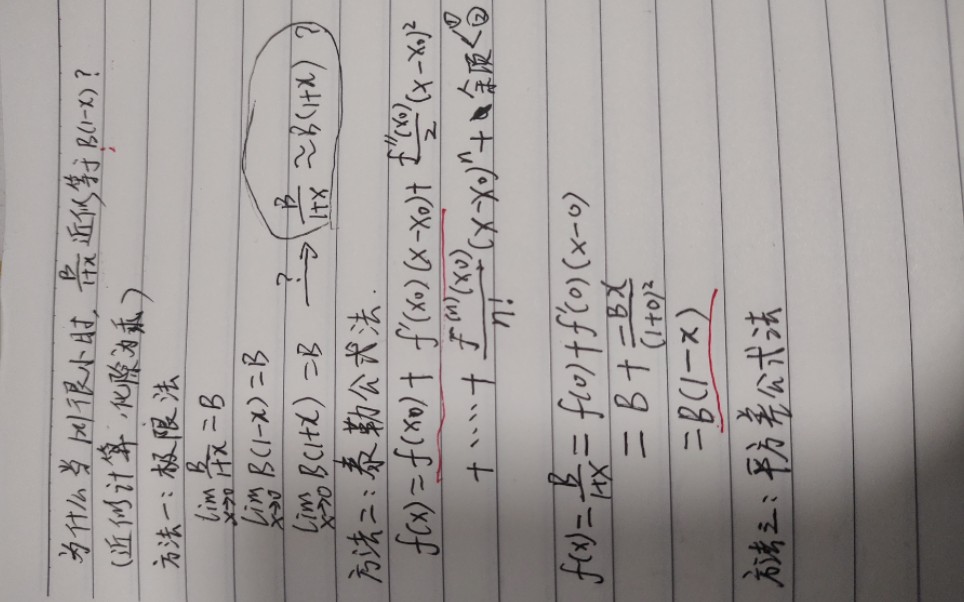 为什么当|x|很小时, B/1+x 近似等于B(1-x)?
(近似计算,化除为乘)
方法一:极限法
lim x→0 B/1+x = B
lim x→0 B(1-x) = B
lim x→0 B(1+x) = B ?→ B/1+x ≈ B(1+x) ?
方法二:泰勒公式法.
f(x) = f(x0) + f'(x0)(x-x0) + f''(x0)/2 (x-x0)²
+ ····· + f⁽ⁿ⁾(x0)/n! (x-x0)ⁿ + 余项<①②
f(x) = B/1+x = f(0) + f'(0)(x-0)
= B + -Bx/(1+0)²
= B(1-x)
方法三:平方差公式法